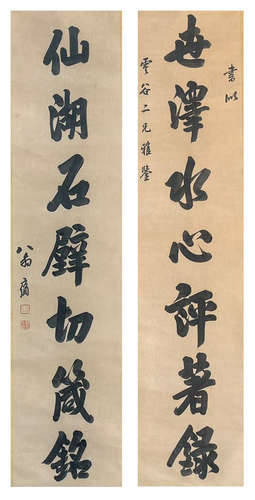 書似
雲谷二兄雅鑒
世澤水心評著錄
仙湖石壁切箴銘